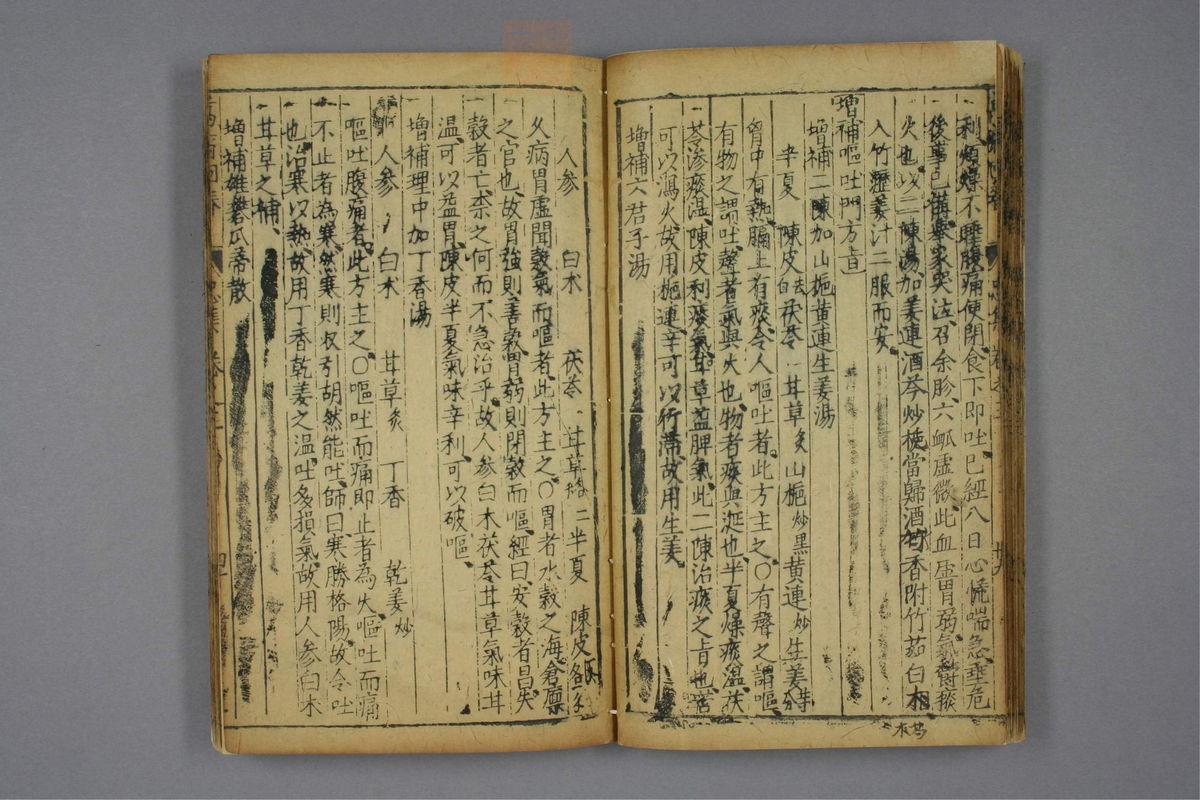 利煩燥不睡腹痛便閉食下即吐已經八日心慌喘急垂危
後事已備舉家哭泣召余胗六脉虛微此血虛胃弱氣欝
火也以二陳湯加姜連酒芩炒梔當歸酒芍香附竹茹白木
入竹瀝姜汁二服而安
增補嘔吐門方旨
增補二陳加山梔黃連生姜湯
半夏 陳皮去白 茯苓 甘草炙 山梔炒黑 黃連炒 生姜等分
胷中有熱膈上有痰令人嘔吐者此方主之〇有聲之謂嘔
有物之謂吐聲者氣與火也物者痰與涎也半夏燥痰濕茯
苓滲痰濕陳皮利痰氣甘草益脾氣此二陳治痰之旨也苦
可以瀉火故用梔連辛可以行滯故用生姜
增補六君子湯
人參 白木 茯苓 甘草 二半夏 陳皮
久病胃虛聞穀氣而嘔者此方主之〇胃者水穀之海倉廩
之官也故胃強則善穀胃弱則閉穀而嘔經曰安穀者昌失
穀者亡柰之何而不急治乎故人參白木茯苓甘草氣味甘
溫可以益胃陳皮半夏氣味辛利可以破嘔
增補理中加丁香湯
人參 白木 甘草炙 丁香 乾姜炒
嘔吐腹痛者此方主之〇嘔吐而痛即止者為火嘔吐而痛
不止者為寒然寒則收引胡然能吐師曰寒勝格陽故令吐
也治寒以熱故用丁香乾姜之溫吐多損氣故用人參白木
甘草之補
增補雄瓜蒂散